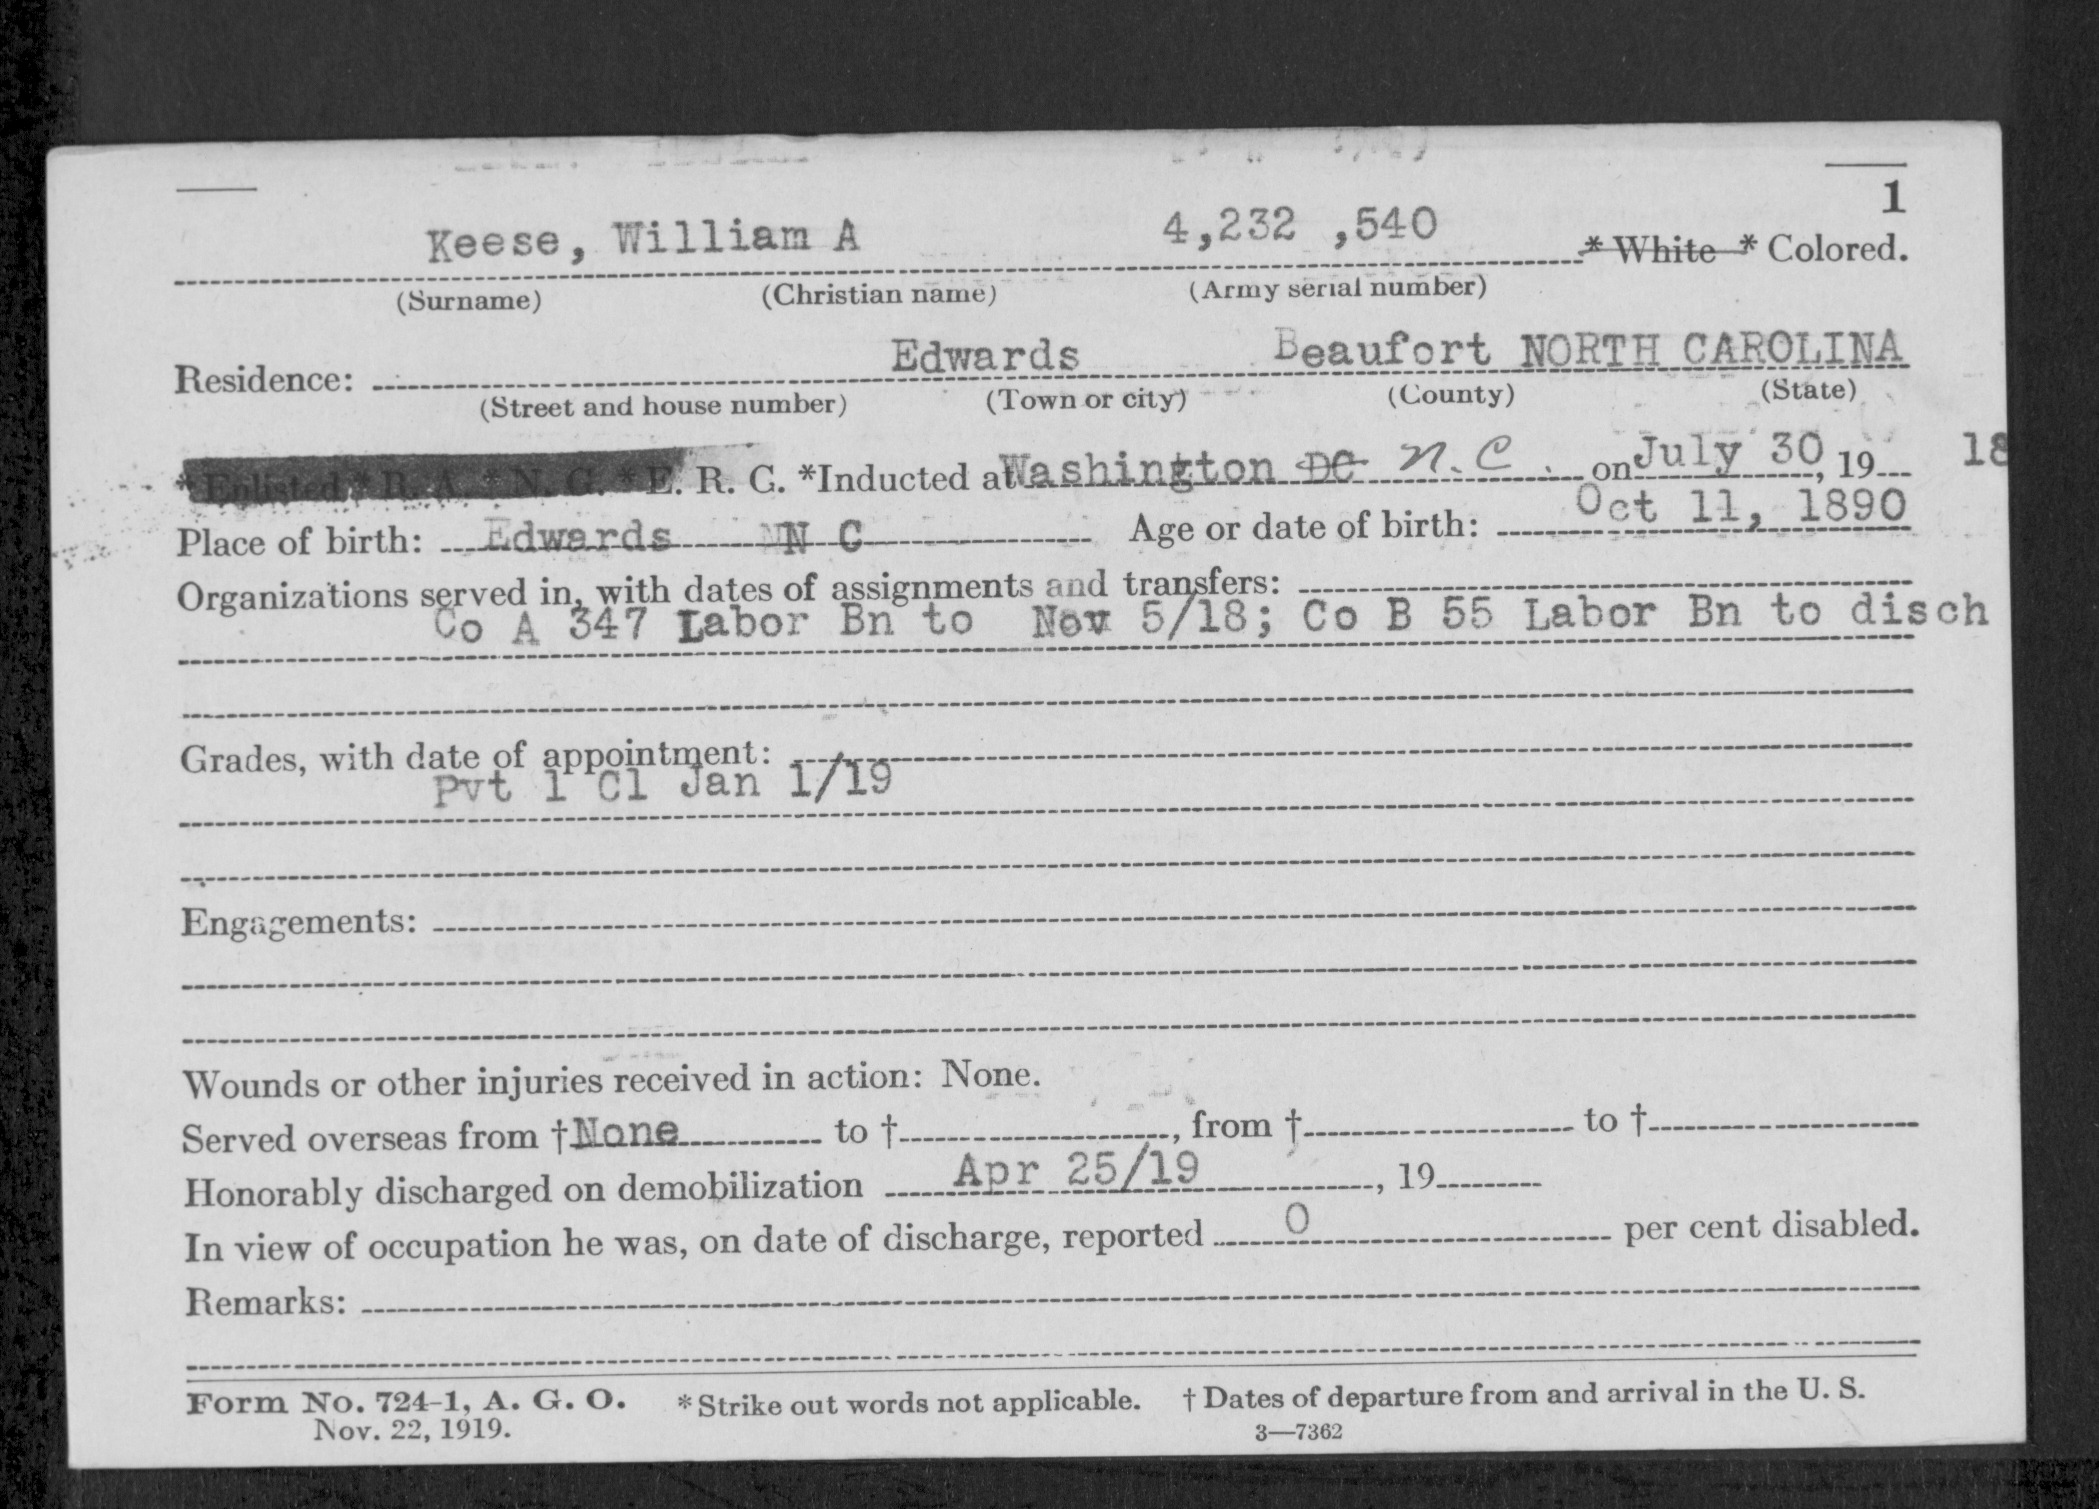 1
Keese, William A 4,232 ,540 * White * Colored.
(Surname) (Christian name) (Army serial number)
Residence: Edwards Beaufort NORTH CAROLINA
(Street and house number) (Town or city) (County) (State)
*Enlisted * R. A. * N. G. * E. R. G. *Inducted at Washington DC N.C. on July 30, 19 18
Place of birth: Edwards N C Age or date of birth: Oct 11, 1890
Organizations served in, with dates of assignments and transfers:
Co A 347 Labor Bn to Nov 5/18; Co B 55 Labor Bn to disch
Grades, with date of appointment:
Pvt 1 Cl Jan 1/19
Engagements:
Wounds or other injuries received in action: None.
Served overseas from †None to †, from † to †
Honorably discharged on demobilization Apr 25/19, 19
In view of occupation he was, on date of discharge, reported 0 per cent disabled.
Remarks:
Form No. 724-1, A. G. O. *Strike out words not applicable. † Dates of departure from and arrival in the U. S.
Nov. 22, 1919. 3—7362